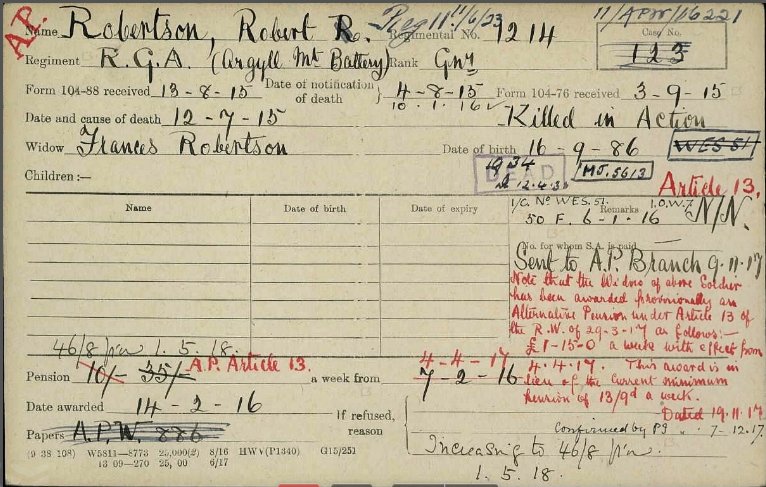 A.P.
Name Robertson, Robert R. Regimental No. 1214
11/6/23
11/APW/16221
Case No.
123
Regiment R.G.A. (Argyll Mt Battery) Rank Gnr
Form 104-88 received 13-8-15 Date of notification of death } 4-8-15 Form 104-76 received 3-9-15
10.1.16
Date and cause of death 12-7-15 Killed in Action
Widow Frances Robertson Date of birth 16-9-86 WES 51
1934
DEAD
12.4.3
MJ.5613
Children :—
Article 13.
Name Date of birth Date of expiry Remarks
I/C. No WES. 51. I.O.W.7
50 F. 6-1-16 N/N.
No. for whom S.A. is paid
Sent to A.P. Branch 9.11.17
Note that the Widow of above Soldier
has been awarded provisionally an
Alternative Pension under Article 13 of
the R.W. of 29-3-17 as follows:—
£1-15-0 a week with effect from
4.4.17. This award is in
lieu of the current minimum
pension of 13/9d a week.
Dated 19.11.17
Confirmed by 7-12.17.
46/8 p.w 1.5.18.
A.P. Article 13.
4-4-17
Pension 10/- 35/- a week from 7-2-16
Date awarded 14-2-16
Papers A.P.W. 886
If refused, reason
Increasing to 46/8 p.w.
1.5.18.
(9 38 108) W5811—8773 25,000(2) 8/16 HWV(P1340) G15/251
13 09—270 25, 00 6/17